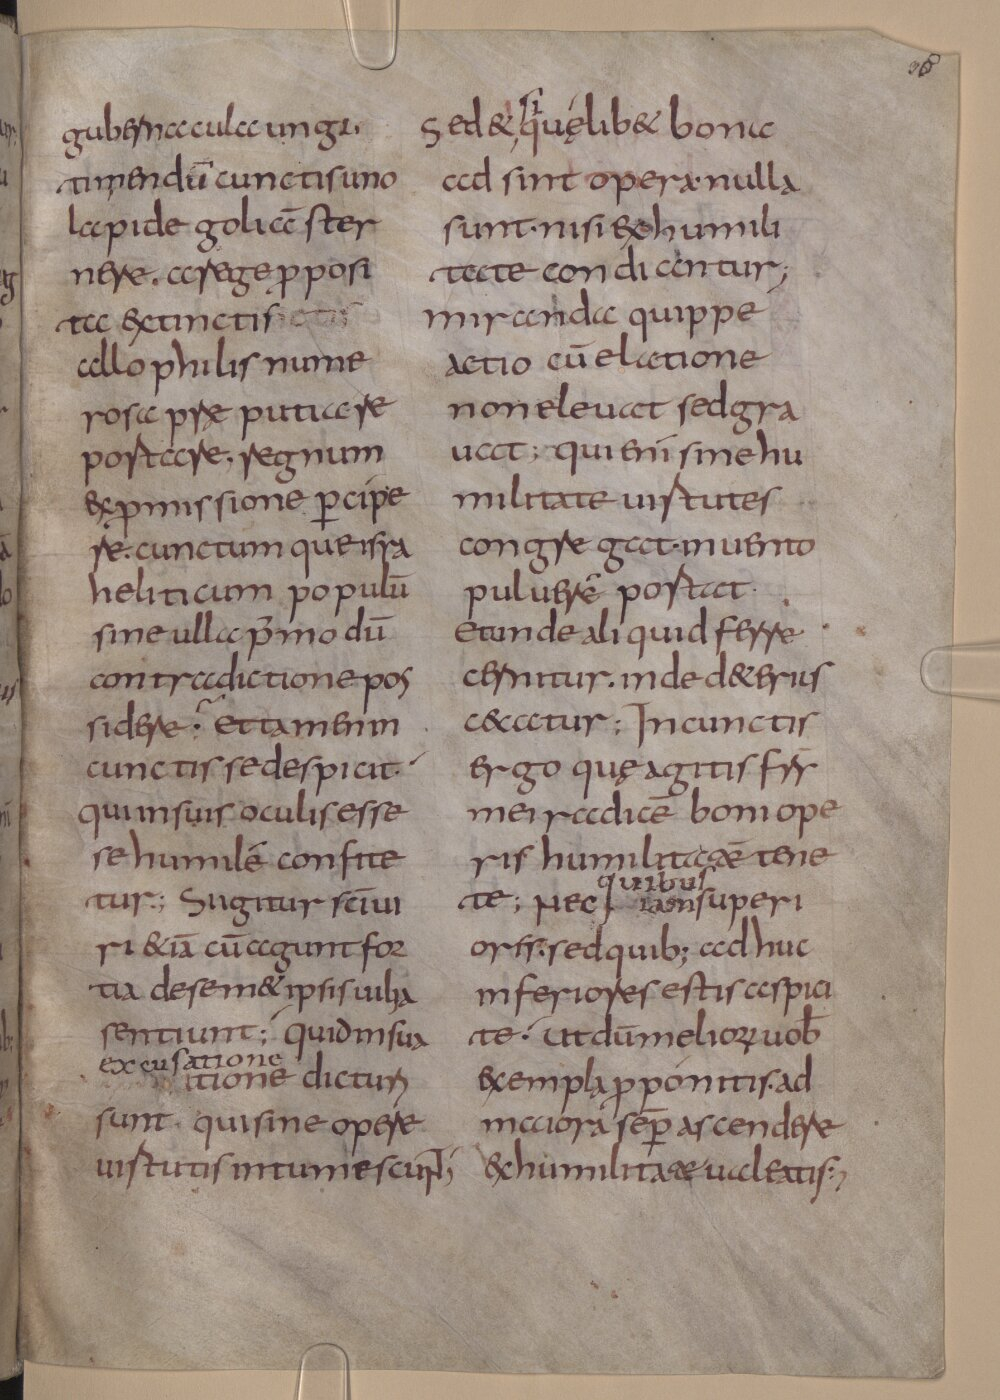 36
gubernacula ungi,
timendū cunctis uno
lapide goliā ster
nere. a rege p̱posi
ta extinctis
allophilis nume
rosa p̱fæ putiare
postare. regnum
ex p̱missione ꝑcipe
re. cunctum que isra
heliticum populū
sine ulla p̄modū
contradictione pos
sidere. Et tamen in
cunctis se despicit.
qui in suis oculis esse
se humilē confite
tur; Si igitur sc̄i ui
ri & iā cū agunt for
tia de sem&ipsis uilia
sentiunt; quid in sua
excusatione
itione dicturi
sunt. qui sine opere
uirtutis intumescunt;
Sed & si quęlib& bona
ad sint opera. nulla
sunt. nisi ex humili
tate condiantur;
miranda quippe
actio cū elatione
non eleuat sed gra
uat; qui enī sine hu
militate uirtutes
congregat. in uento
puluerē portat.
Et unde aliquid ferre
cernitur. inde deterius
cæcatur; In cunctis
ergo quę agitis frr
mei radicē boni ope
ris humilitatē tene
te; Nec quibus
iam superi
oris. sed quib; adhuc
inferiores estis aspici
te. Ut dū meliorꝝ uob̄
exempla p̱ponitis. ad
maiora semꝑ ascendere
ex humilitate ualeatis;